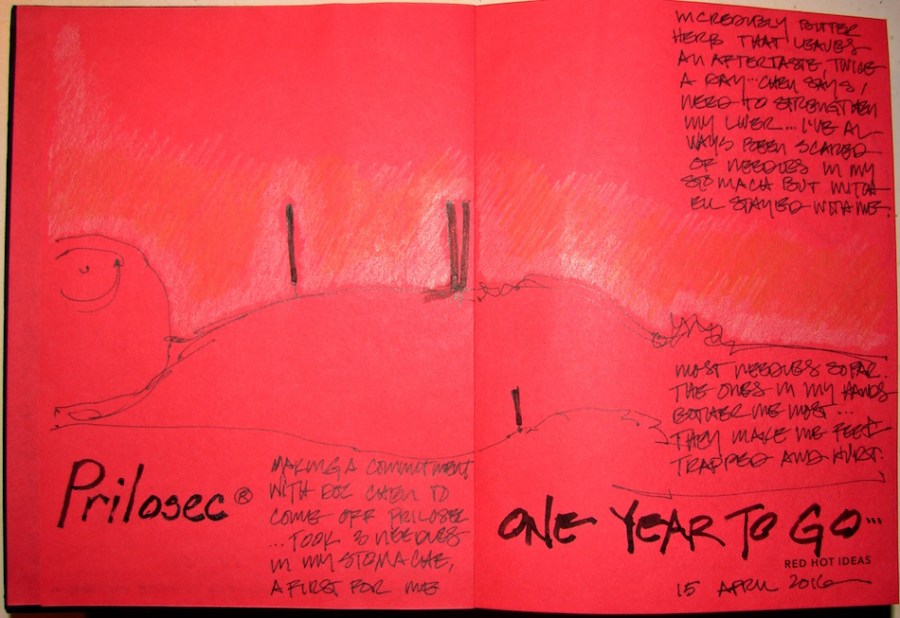 Prilosec®
MAKING A COMMITMENT
WITH DOC CHEN TO
COME OFF PRILOSEC
...TOOK 3 NEEDLES
IN MY STOMACHE,
A FIRST FOR ME
INCREDIBLY BITTER
HERB THAT LEAVES
AN AFTERTASTE, TWICE
A DAY... CHEN SAYS I
NEED TO STRENGTHEN
MY LIVER... I'VE AL-
WAYS BEEN SCARED
OF NEEDLES IN MY
STOMACH BUT MITCH-
ELL STAYED WITH ME.
MOST NEEDLES SO FAR.
THE ONES IN MY HANDS
BOTHER ME MOST...
THEY MAKE ME FEEL
TRAPPED AND HURT.
ONE YEAR TO GO...
RED HOT IDEAS
15 APRIL 2016